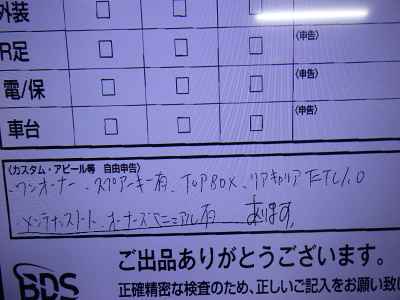 外装 □ □ □
〈申告〉
R足 □ □ □
〈申告〉
電/保 □ □ □
〈申告〉
車台 □ □ □
〈カスタム・アピール等 自由申告〉
ワンオーナー、スペアキー有、TOPBOX、リアキャリア ETC1.0
メンテナンスノート、オーナーズマニュアル有 あります。
ご出品ありがとうございます。
BDS 正確精密な検査のため、正しいご記入をお願い致